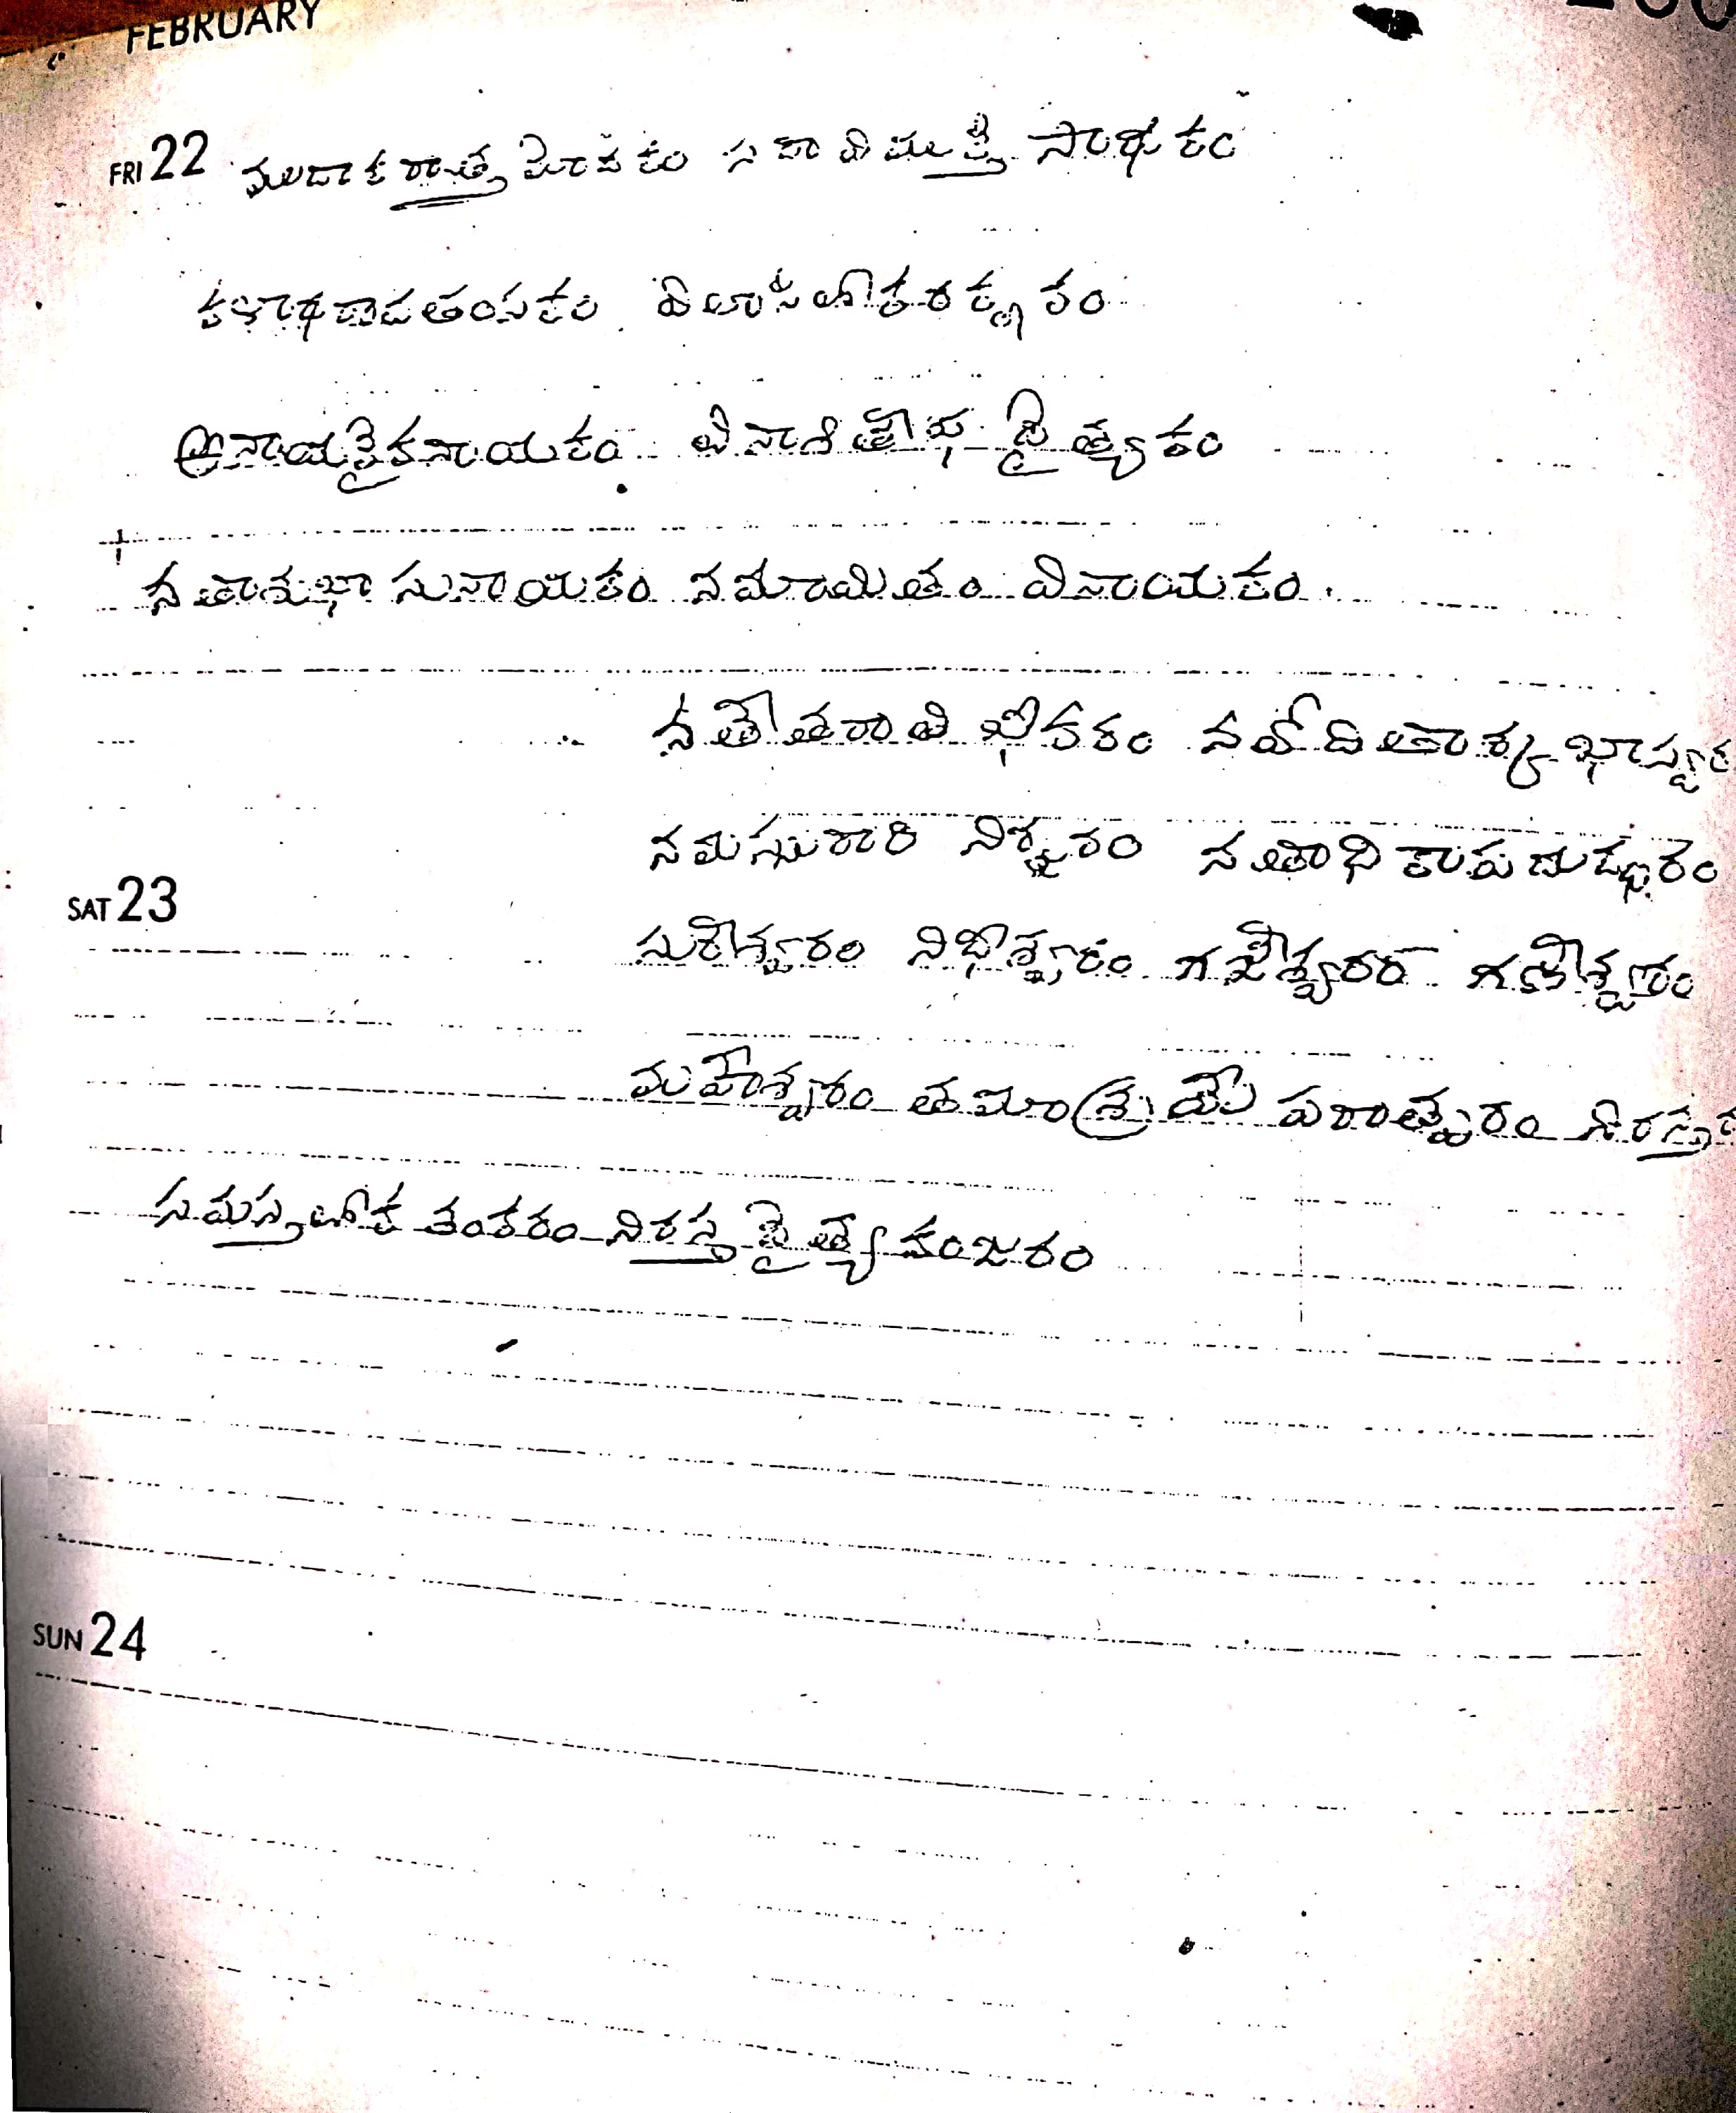 FEBRUARY
FRI 22 ముదాకరాత్త మోదకం సదావిముక్తి సాధకం
కళాధరావతంసకం విలాసలోకరక్షకం
అనాయకైకనాయకం వినాశితేభ దైత్యకం
నతాశుభా సునాయకం నమామితం వినాయకం.
నతేతరాతి భీకరం నవోదితార్క భాస్వర
నమత్సురారి నిర్జరం నతాధికాపదుద్ధరం
SAT 23
సురేశ్వరం నిధీశ్వరం గజేశ్వరం గణేశ్వరం
మహేశ్వరం తమాశ్రయే పరాత్పరం నిరస్త
సమస్తలోక శంకరం నిరస్త దైత్య కుంజరం
SUN 24